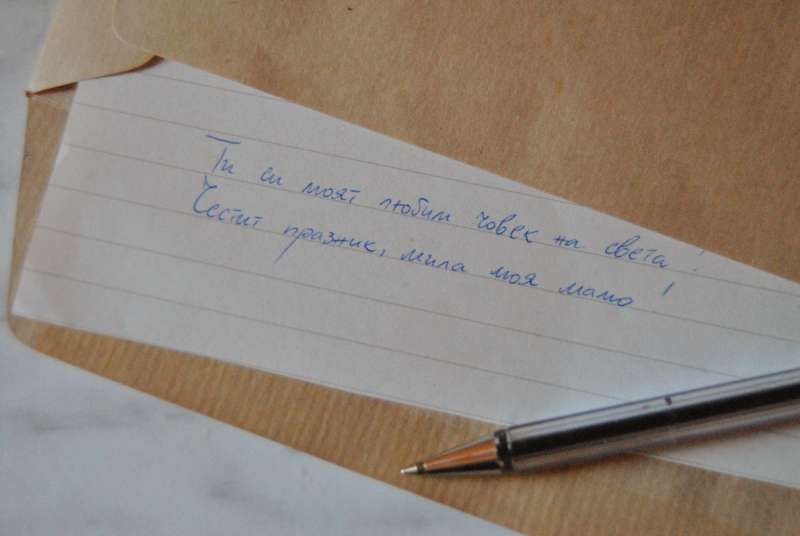 Ти си моят любим човек на света!
Честит празник, мила моя мамо!